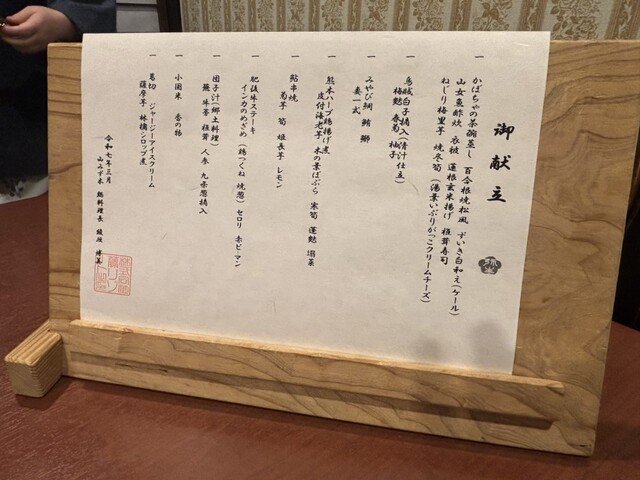 御献立
一 かぼちゃの茶碗蒸し 百合根焼松風 ずいき白和え(ケール)
山女魚酢炊 衣被 蓮根玄米揚げ 椎茸寿司
ねじり梅里芋 焼冬筍 (湯葉いぶりがっこクリームチーズ)
一 烏賊白子椀入(清汁仕立)
梅麩 春菊 柚子
一 みやび鯛 鮪 鰤
妻一式
一 熊本ハーブ鶏揚げ煮
皮付海老芋 木の葉はぷら 寒筍 蓬麩
一 鮎串焼
菊芋 筍 姫長芋 レモン
一 肥後牛ステーキ
インカのめざめ (鶏つくね 焼葱) セロリ 赤ピーマン
一 団子汁(郷土料理)
鰻 牛蒡 椎茸 人参 九条葱椀入
一 小国米 香の物
一 葛切 ジャージーアイスクリーム
薩摩芋、林檎シロップ煮
令和七年三月
山みず木 総料理長